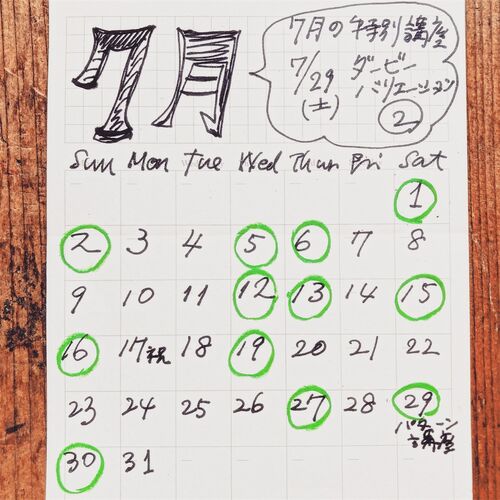 7月
7月の特別講座
7/29 ダービー
(土) バリエーション
②
Sun Mon Tue Wed Thur Fri Sat
1
2 3 4 5 6 7 8
9 10 11 12 13 14 15
16 17祝 18 19 20 21 22
23 24 25 26 27 28 29
パターン
講座
30 31